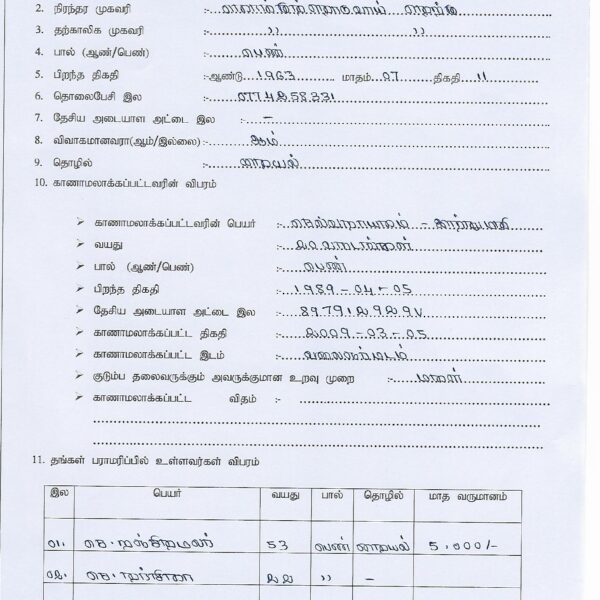 2. நிரந்தர முகவரி :-
3. தற்காலிக முகவரி :- ,, ,,
4. பால் (ஆண்/பெண்) :- பெண்
5 பிறந்த திகதி :-ஆண்டு 1963 மாதம் 07 திகதி 11
6. தொலைபேசி இல :- 0774258331
7. தேசிய அடையாள அட்டை இல :- –
8. விவாகமானவரா(ஆம்/இல்லை) :- ஆம்
9. தொழில் :- தையல்
10. காணாமலாக்கப்பட்டவரின் விபரம்
➤ காணாமலாக்கப்பட்டவரின் பெயர் :- –
➤ வயது :-
➤ பால் (ஆண்/பெண்) :- பெண்
➤ பிறந்த திகதி :- 1989-04-05
➤ தேசிய அடையாள அட்டை இல :-
➤ காணாமலாக்கப்பட்ட திகதி :- 2009-03-05
➤ காணாமலாக்கப்பட்ட இடம் :- வலைஞர்மடம்
➤ குடும்ப தலைவருக்கும் அவருக்குமான உறவு முறை :- மகள்
➤ காணாமலாக்கப்பட்ட விதம் :-
11. தங்கள் பராமரிப்பில் உள்ளவர்கள் விபரம்
இல பெயர் வயது பால் தொழில் மாத வருமானம்
01. செ. 53 பெண் தையல் 5,000/-
02. செ. 22 ,, –